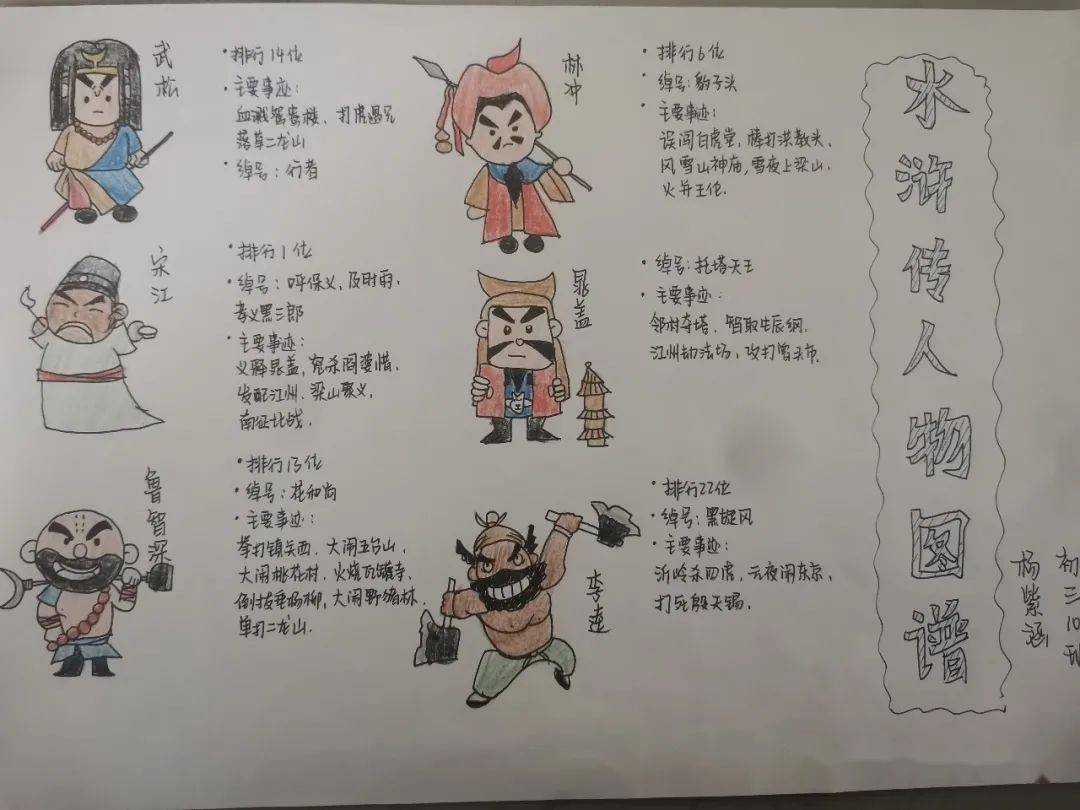 武松
• 排行14位
• 主要事迹:
血溅鸳鸯楼、打虎遇兄
落草二龙山
• 绰号:行者
宋江
• 排行1位
• 绰号:呼保义,及时雨,
孝义黑三郎
• 主要事迹:
义释晁盖,宛杀阎婆惜,
发配江州、梁山聚义,
南征北战.
鲁智深
• 排行13位
• 绰号:花和尚
• 主要事迹:
拳打镇关西、大闹五台山,
大闹桃花村、火烧瓦罐寺,
倒拔垂杨柳,大闹野猪林.
单打二龙山.
林冲
• 排行6位
• 绰号:豹子头
• 主要事迹:
误闯白虎堂,棒打洪教头,
风雪山神庙,雪夜上梁山,
火并王伦.
晁盖
• 绰号:托塔天王
• 主要事迹:
邻村夺塔、智取生辰纲,
江州劫法场,攻打曾头市.
李逵
• 排行22位
• 绰号:黑旋风
• 主要事迹:
沂岭杀四虎,元夜闹东京,
打死殷天锡.
水浒传人物图谱
初三10班
杨紫涵